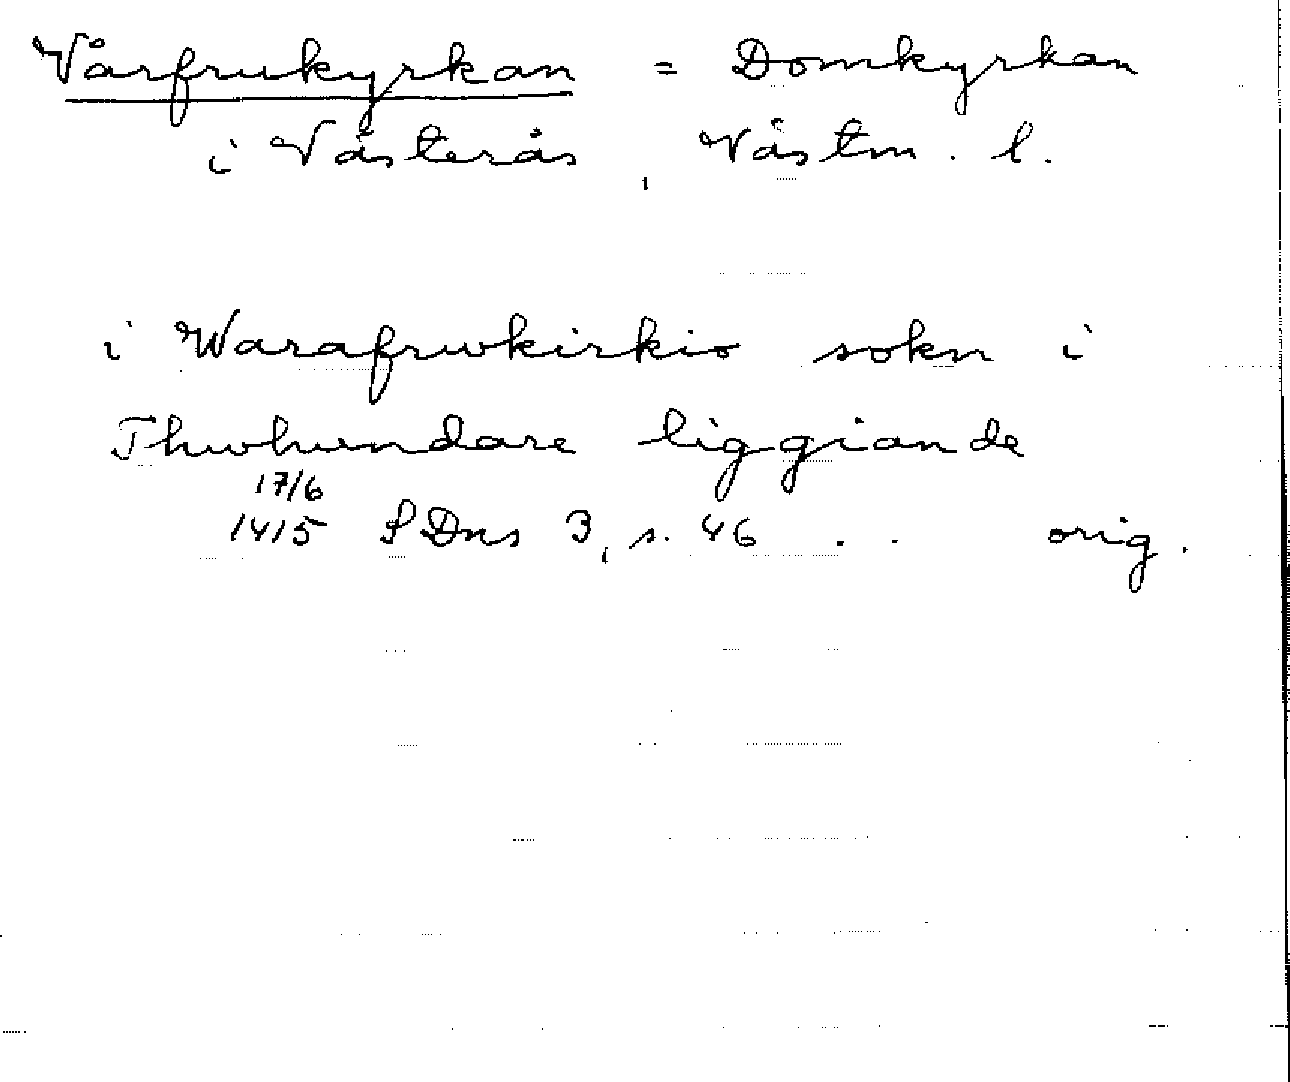 Vårfrukyrkan = Domkyrkan
i Västerås, Västm. l.
i Warafrwkirkio sokn i
Thwhundare liggiande
17/6
1415 SDns 3, s. 46 . . orig.